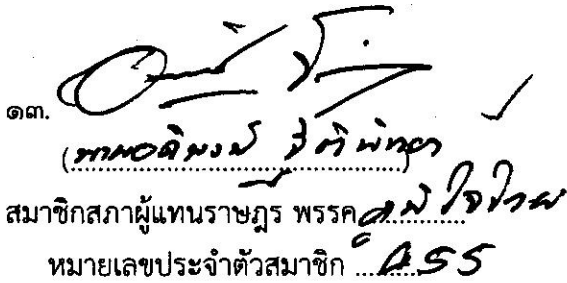 ๑๓.
(นายอดิพงษ์ ฐิติพิทยา)
สมาชิกสภาผู้แทนราษฎร พรรค ภูมิใจไทย
หมายเลขประจำตัวสมาชิก 455